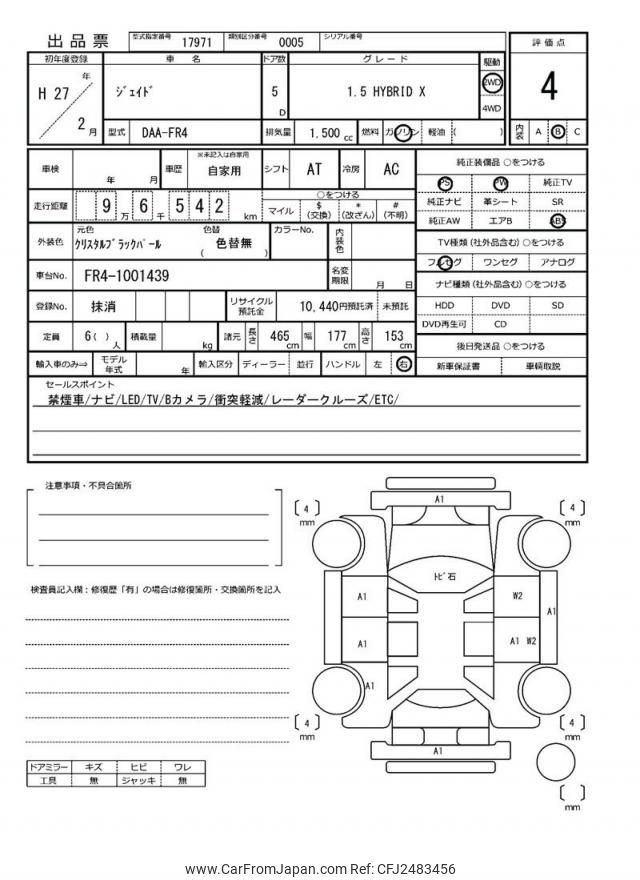 出品票 型式指定番号 17971 類別区分番号 0005 シリアル番号
評価点
4
内装 A B C
初年度登録 車名 ドア数 グレード 駆動
H 27 年 2 月
ジェイド 5 D 1.5 HYBRID X 2WD 4WD
型式 DAA-FR4 排気量 1,500 cc 燃料 ガソリン 軽油 ( )
車検 年 月 車歴 ※未記入は自家用 自家用 シフト AT 冷房 AC
走行距離 9 万 6 千 5 4 2 km
○をつける
マイル $(交換) *(改ざん) #(不明)
外装色 元色 クリスタルブラックパール 色替 ( 色替無 ) カラーNo. 内装色
車台No. FR4-1001439 名変期限 月 日
登録No. 抹消 リサイクル預託金 10,440円預託済 未預託
定員 6( ) 人 積載量 kg 諸元 長さ 465 cm 幅 177 cm 高さ 153 cm
輸入車のみ⇒ モデル年式 年 輸入区分 ディーラー 並行 ハンドル 左 右
純正装備品 ○をつける
PS PW 純正TV
純正ナビ 革シート SR
純正AW エアB ABS
TV種類(社外品含む)○をつける
フルセグ ワンセグ アナログ
ナビ種類(社外品含む)○をつける
HDD DVD SD
DVD再生可 CD
後日発送品 ○をつける
新車保証書 車輌取説
セールスポイント
禁煙車/ナビ/LED/TV/Bカメラ/衝突軽減/レーダークルーズ/ETC/
注意事項・不具合箇所
検査員記入欄:修復歴「有」の場合は修復箇所・交換箇所を記入
ドアミラー キズ ヒビ ワレ
工具 無 ジャッキ 無
A1
[4] mm
[4] mm
トビ石
A1
W2
A1
A1
A1 W2
A1
[4] mm
[4] mm
A1
[ ] mm
www.CarFromJapan.com Ref: CFJ2483456